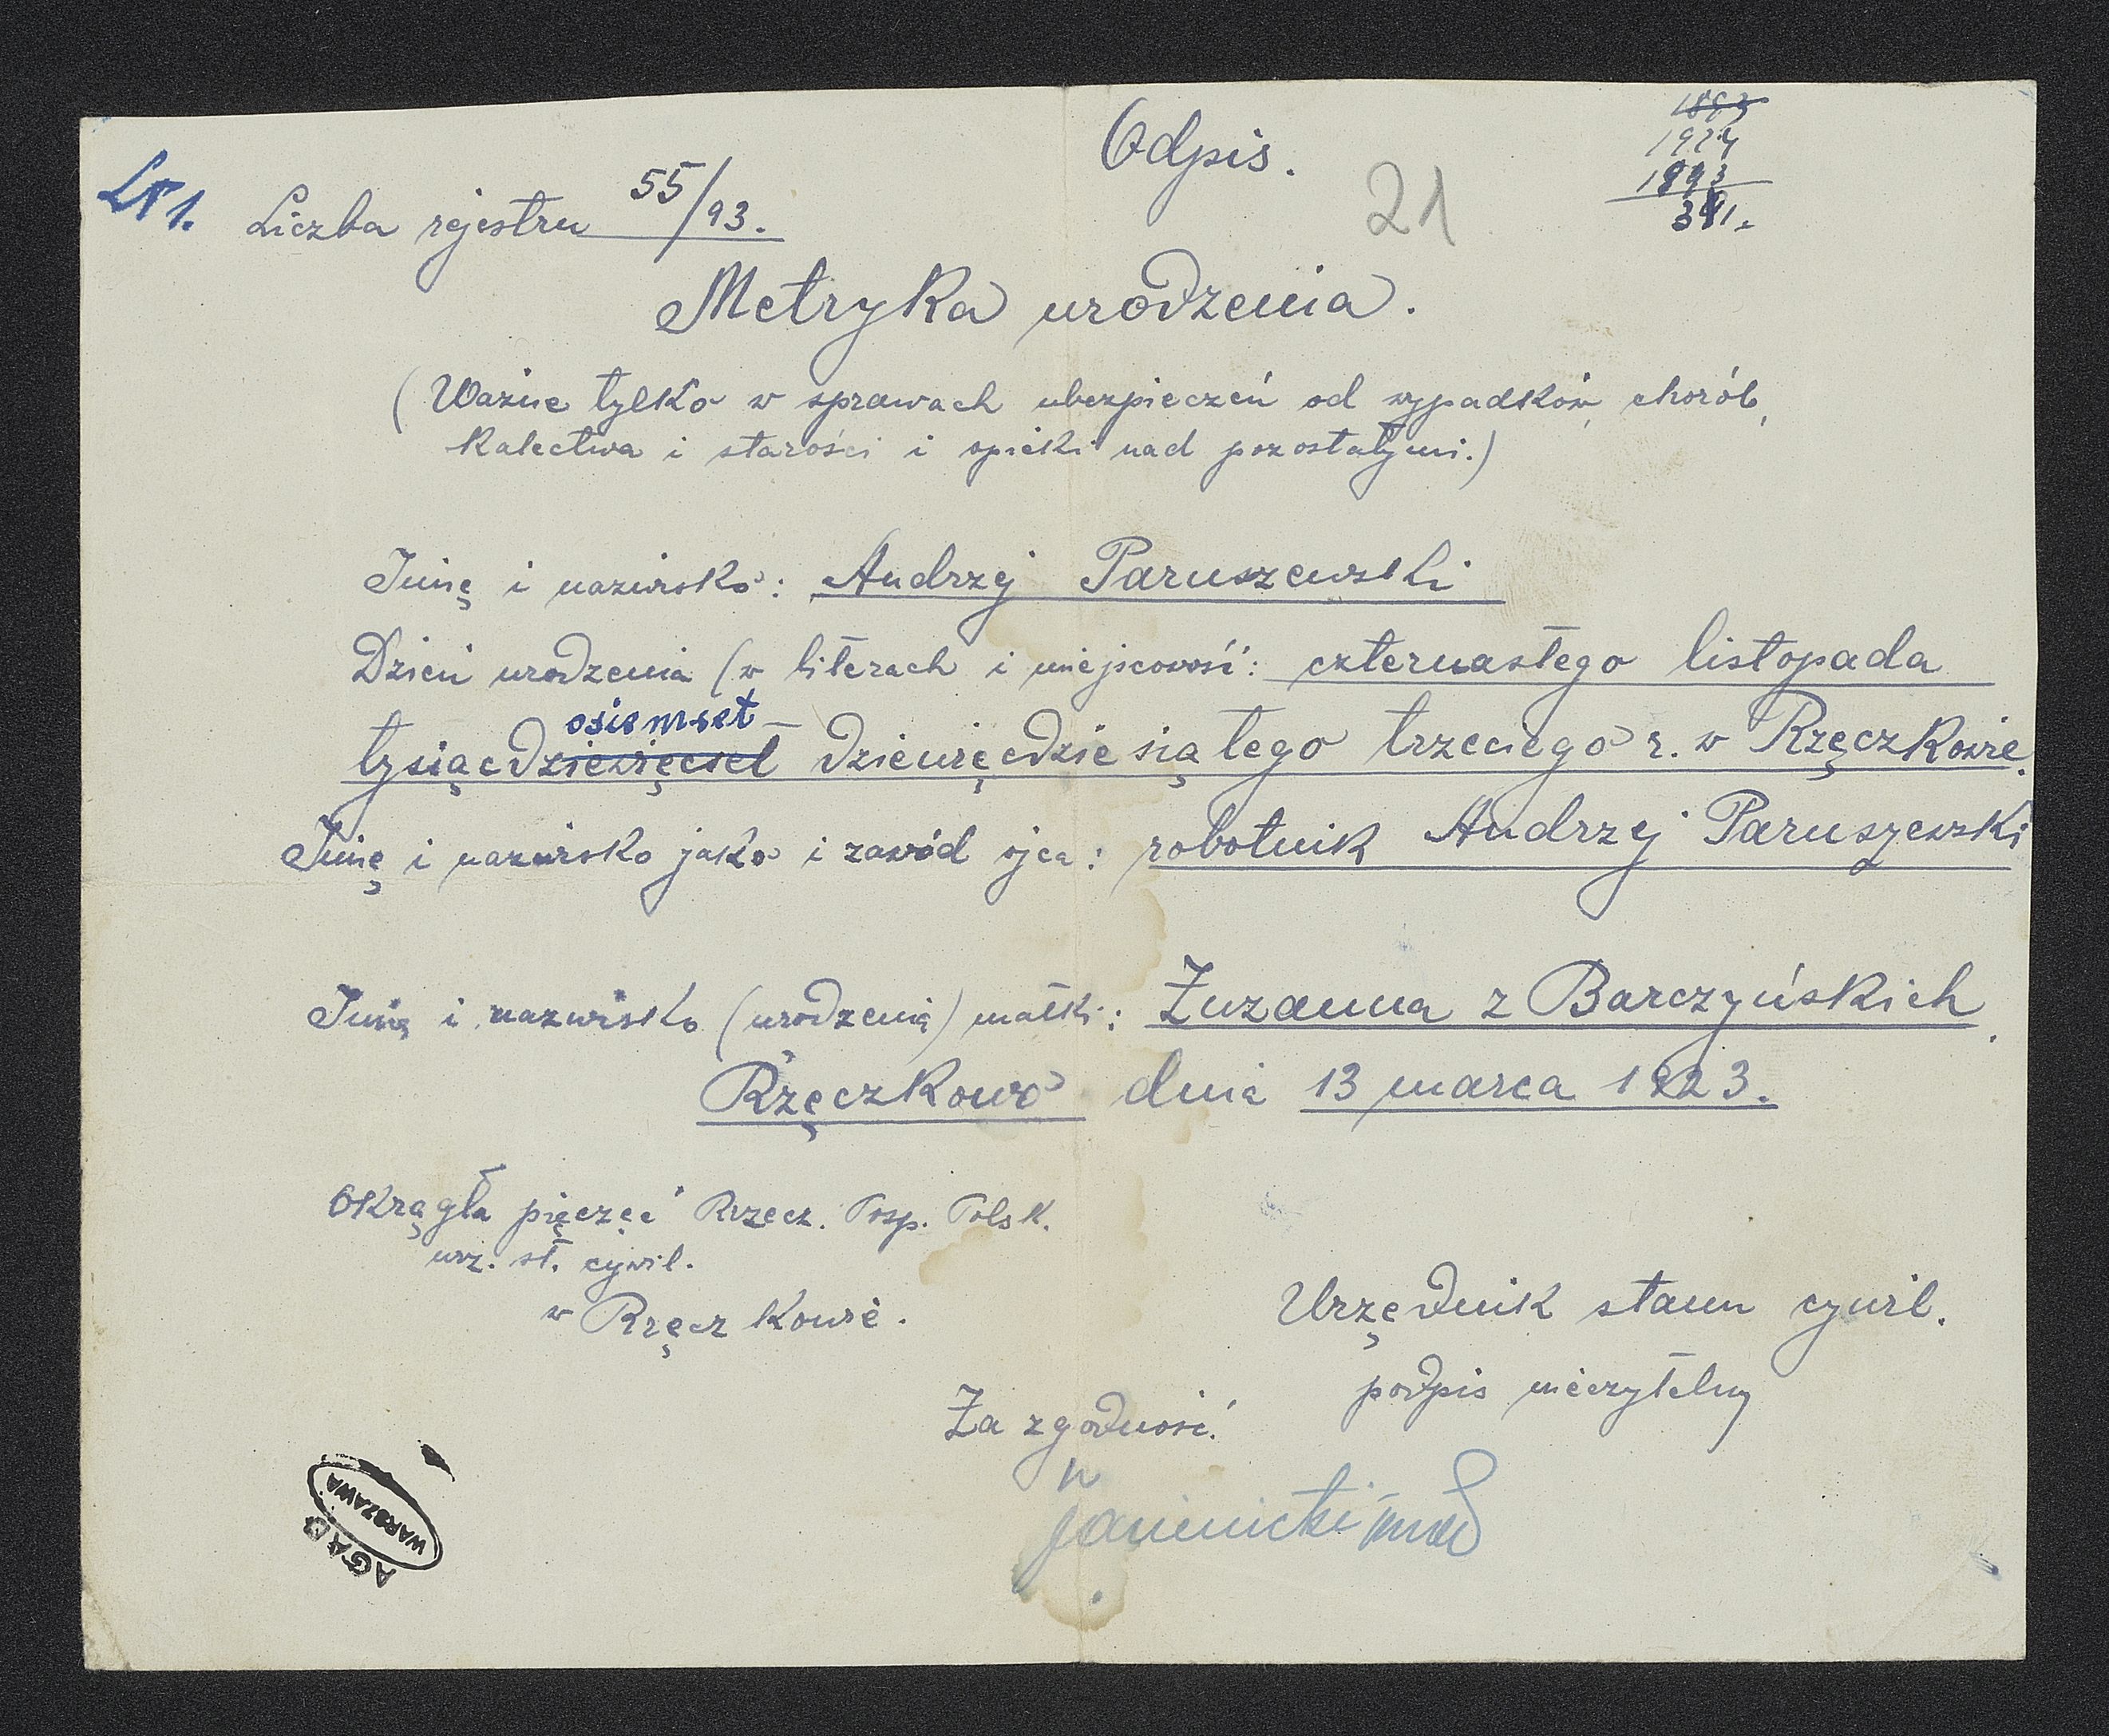 Odpis.
1883
1924
1893
21
Liczba rejestru 55/93.
Metryka urodzenia.
(Ważne tylko w sprawach ubezpieczeń od wypadków, chorób,
kalectwa i starości i opieki nad pozostałymi.)
Imię i nazwisko: Andrzej Paruszewski
Dzień urodzenia (w literach i miejscowość: czternastego listopada
osiemset
tysiącdziewięcset dziewięćdziesiątego trzeciego r. w Rzęczkowie.
Imię i nazwisko jako i zawód ojca: robotnik Andrzej Paruszewski
Imię i nazwisko (urodzenia) matki: Zuzanna z Barczyńskich.
Rzęczkowo dnia 13 marca 1923.
Okrągła pięczęć Rzecz. Posp. Polsk.
urz. st. cywil.
w Rzęczkowie.
Urzędnik stanu cywil.
podpis nieczytelny
Za zgodność.
AGAD
WARSZAWA